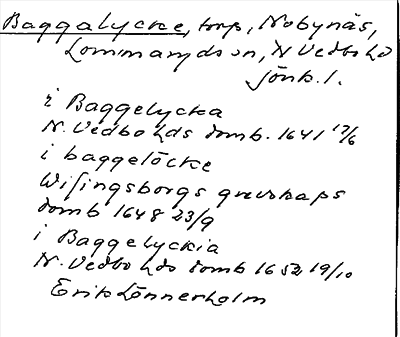 Baggalycke, torp, Nobynäs,
Lommaryds sn, N Vedbo hd
Jönk. l.
i Baggelycka
N. Vedbo hds domb. 1641 17/6
i baggelöcke
Wisingsborgs grevskaps
domb 1648 23/9
i Baggelyckia
N. Vedbo hds domb 1652 19/10
Erik Lönnerholm